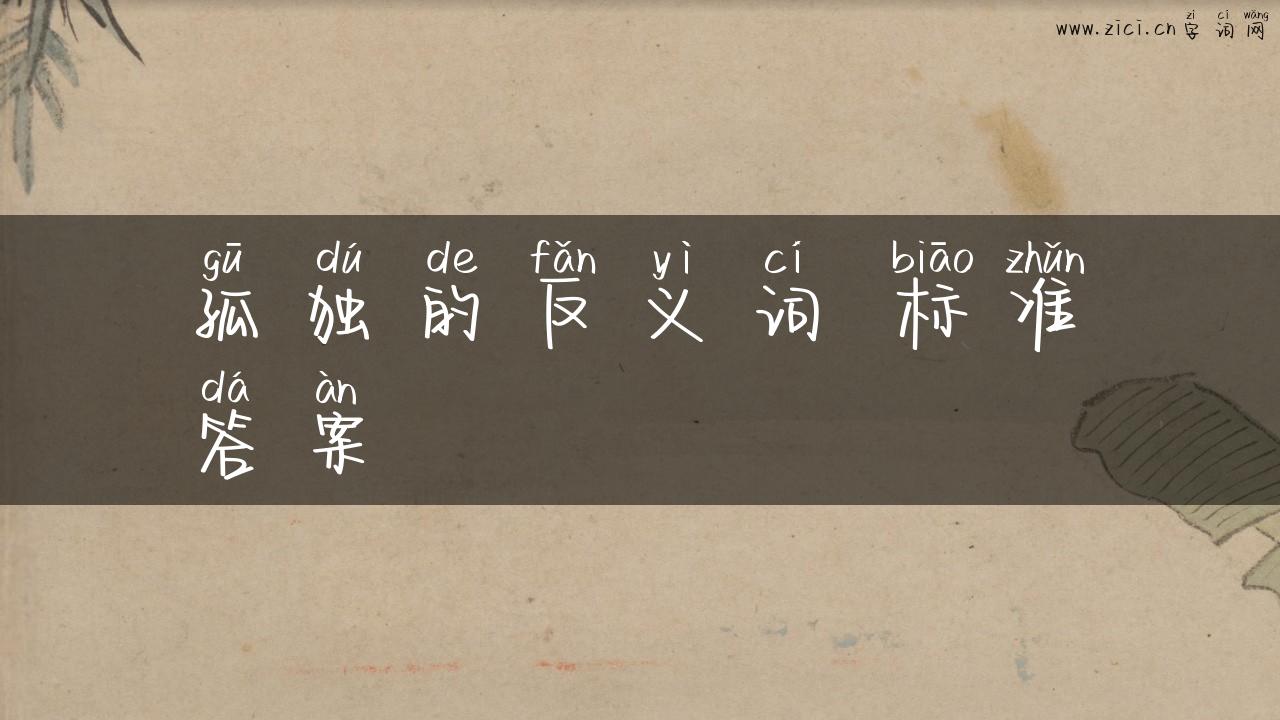 zì cí wǎng
www.zici.cn 字词网
gū dú de fǎn yì cí biāo zhǔn
孤独的反义词 标准
dá àn
答案